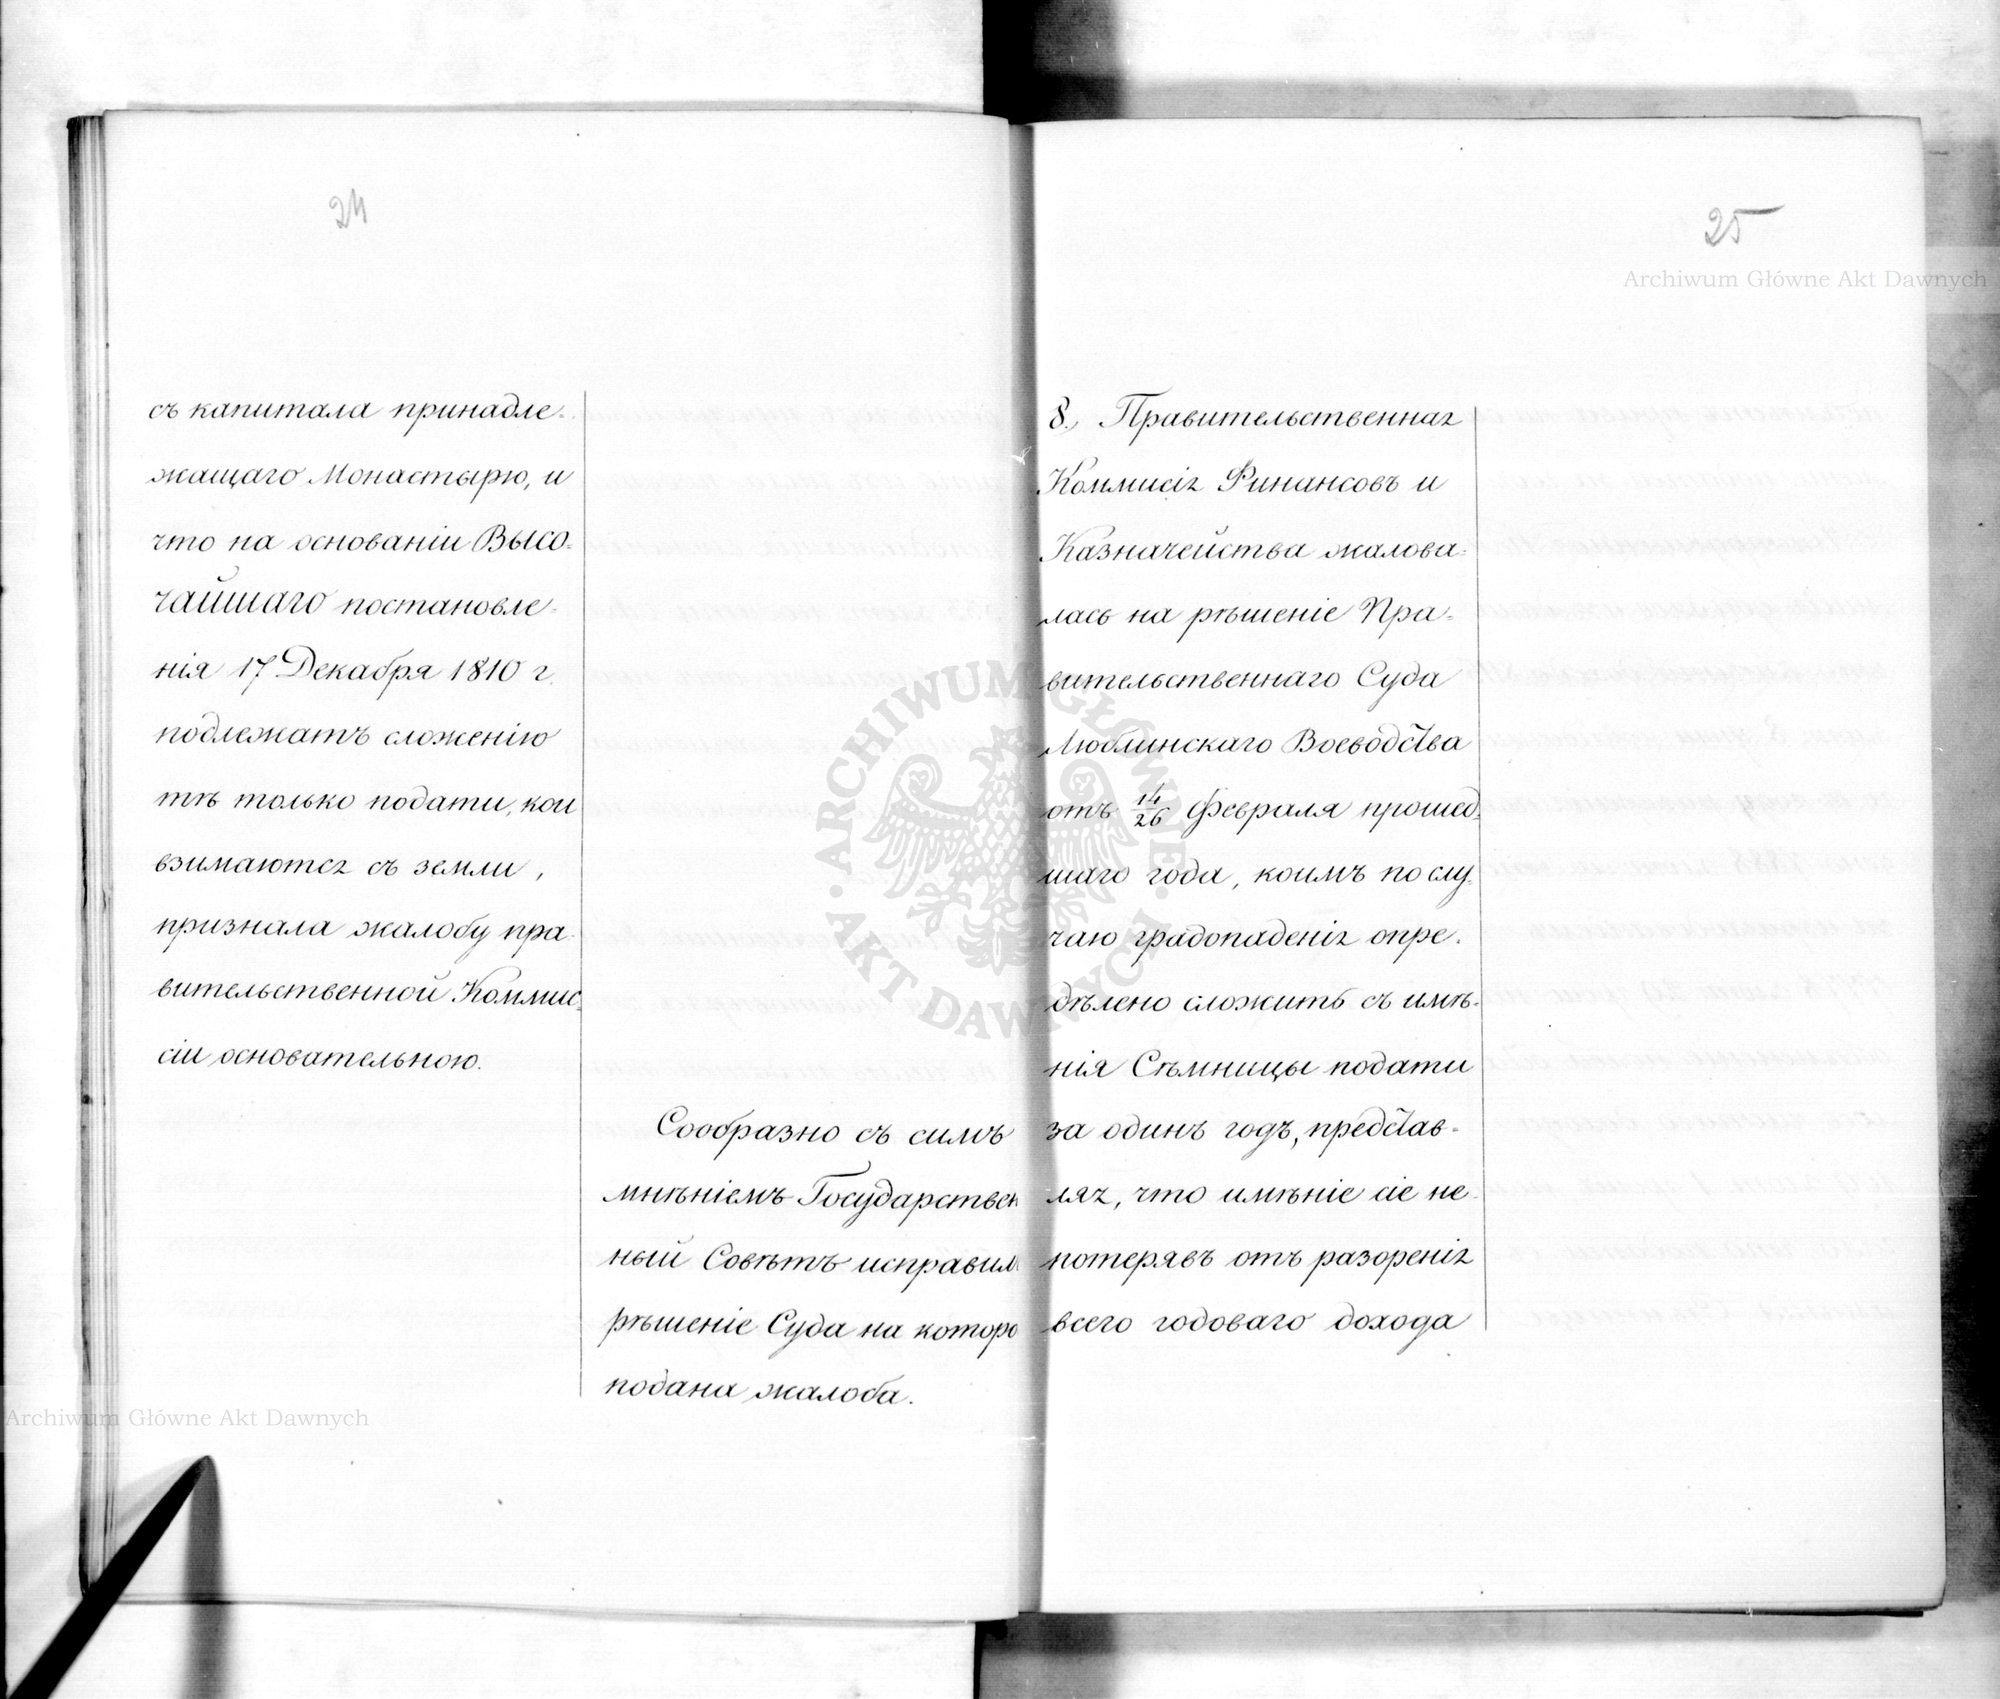 24
съ капитала принадле-
жащаго Монастырю, и
что на основаніи Высо-
чайшаго постановле-
нія 17 Декабря 1810 г.
подлежатъ сложенію
тѣ только подати, кои
взимаются съ земли,
признала жалобу пра-
вительственной Коммис-
сіи основательною.
Сообразно съ симъ
мнѣніемъ Государствен
ный Совѣтъ исправил
рѣшеніе Суда на которо
подана жалоба.
Archiwum Główne Akt Dawnych
25
Archiwum Główne Akt Dawnych
8., Правительственная
Коммисія Финансовъ и
Казначейства жалова-
лась на рѣшеніе Пра-
вительственнаго Суда
Люблинскаго Воеводства
отъ 14/26 Февраля прошед-
шаго года, коимъ по слу-
чаю градопаденія опре-
дѣлено сложить съ имѣ-
нія Сѣмницы подати
за одинъ годъ, представ-
ляя, что имѣніе сіе не
потерявъ отъ разоренія
всего годоваго дохода
ARCHIWUM GŁÓWNE AKT DAWNYCH